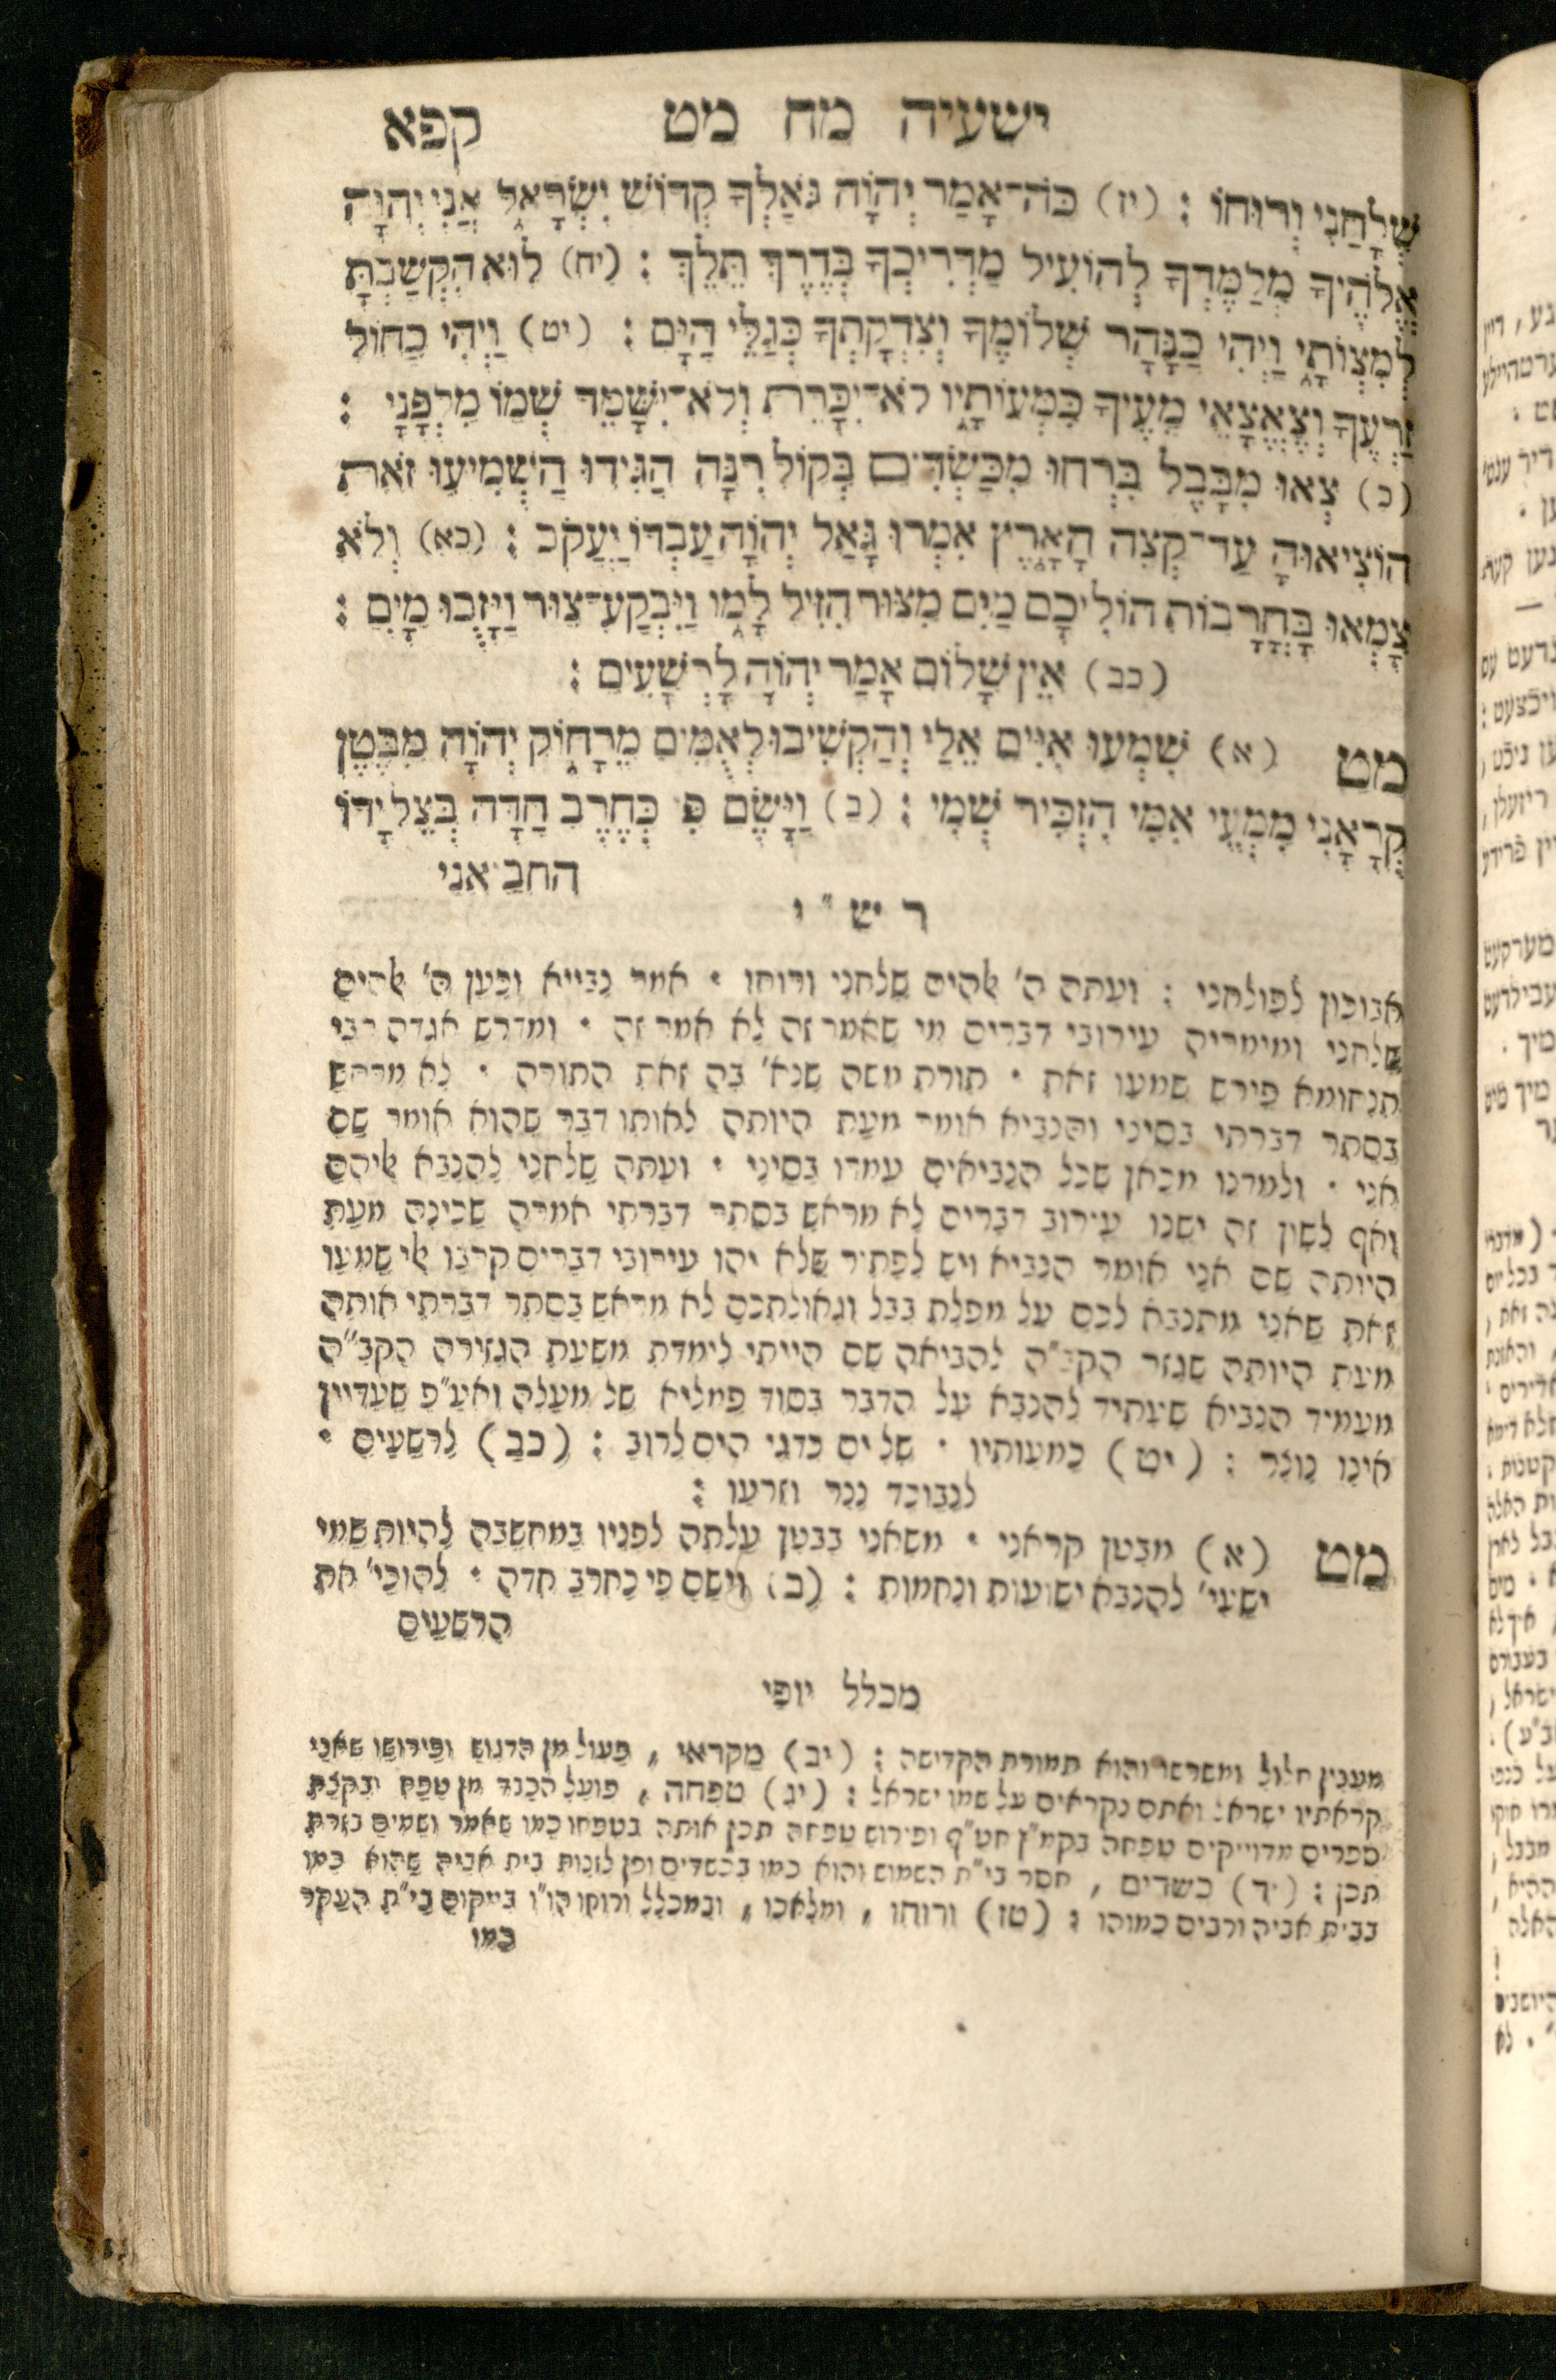 ישעיה מח מט קפא
שְׁלָחַנִי וְרוּחוֹ : (יז) כֹּה־אָמַר יְהוָֹה גֹּאַלְךָ קְדוֹשׁ יִשְׂרָאֵל אֲנִי יְהוָֹה
אֱלֹהֶיךָ מְלַמֶּדְךָ לְהוֹעִיל מַדְרִיכְךָ בְּדֶרֶךְ תֵּלֵךְ : (יח) לוּא הִקְשַׁבְתָּ
לְמִצְוֹתָי וַיְהִי כַנָּהָר שְׁלוֹמֶךָ וְצִדְקָתְךָ כְּגַלֵּי הַיָּם : (יט) וַיְהִי כַחוֹל
זַרְעֶךָ וְצֶאֱצָאֵי מֵעֶיךָ כִּמְעוֹתָיו לֹא־יִכָּרֵת וְלֹא־יִשָּׁמֵד שְׁמוֹ מִלְּפָנָי :
(כ) צְאוּ מִבָּבֶל בִּרְחוּ מִכַּשְׂדִּים בְּקוֹל רִנָּה הַגִּידוּ הַשְׁמִיעוּ זֹאת
הוֹצִיאוּהָ עַד־קְצֵה הָאָרֶץ אִמְרוּ גָּאַל יְהוָֹה עַבְדּוֹ יַעֲקֹב : (כא) וְלֹא
צָמְאוּ בָּחֳרָבוֹת הוֹלִיכָם מַיִם מִצּוּר הִזִּיל לָמוֹ וַיִּבְקַע־צוּר וַיָּזֻבוּ מָיִם :
(כב) אֵין שָׁלוֹם אָמַר יְהוָֹה לָרְשָׁעִים :
מט (א) שִׁמְעוּ אִיִּים אֵלַי וְהַקְשִׁיבוּ לְאֻמִּים מֵרָחוֹק יְהוָֹה מִבֶּטֶן
קְרָאָנִי מִמְּעֵי אִמִּי הִזְכִּיר שְׁמִי : (ב) וַיָּשֶׂם פִּי כְּחֶרֶב חַדָּה בְּצֵל יָדוֹ
החבאני
רש"י
אבוכון לפולחני : ועתה ה' אלהים שלחני ורוחו • אמר נבייא וכען ה' אלהים
שלחני ומימריה עירובי דברים מי שאמר זה לא אמר זה • ומדרש אגדה רבי
תנחומא פירש שמעו זאת • תורת משה שנא' בה זאת התורה • לא מראש
בסתר דברתי בסיני והנביא אומר מעת היותה לאותו דבר שהוא אומר שם
אני • ולמדנו מכאן שכל הנביאים עמדו בסיני • ועתה שלחני להנבא אליהם
ואף לשון זה ישנו עירוב דברים לא מראש בסתר דברתי אמרה שכינה מעת
היותה שם אני אומר הנביא ויש לפתור שלא יהו עירובי דברים קרבו אלי שמעו
זאת שאני מתנבא לכם על מפלת בבל וגאולתכם לא מראש בסתר דברתי אותה
מעת היותה שגזר הקב"ה להביאה שם הייתי לימדת משעת הגזירה הקב"ה
מעמיד הנביא שעתיד להנבא על הדבר בסוד פמליא של מעלה ואע"פ שעדיין
אינו נוצר : (יט) כמעותיו • של ים כדגי הים לרוב : (כב) לרשעים •
לנבוכד נצר וזרעו :
מט (א) מבטן קראני • משאני בבטן עלתה לפניו במחשבה להיות שמי
ישעי' להנבא ישועות ונחמות : (ב) וישם פי כחרב חדה • להוכי' את
הרשעים
מכלל יופי
מענין חלול ומשרשו והוא תמורת הקדישה : (יב) מקראי , פעול מן הדגוש ופירושו שאני
קראתיו ישראל ואתם נקראים על שמו ישראל : (יג) טפחה , פועל הכבד מן טפח ובקצת
ספרים מדוייקים טפחה בקמ"ץ חט"ף ופירוש טפחה תכן אותה בטפחו כמו שאמר ושמים בזרת
תכן : (יד) כשדים , חסר בי"ת השמוש והוא כמו בכשדים וכן לזנות בית אביה שהוא כמו
בבית אביה ורבים כמוהו : (טז) ורוחו , ומלאכו , ובמכלל ורוחו הו"ו בייקום בי"ת העקר
כמו